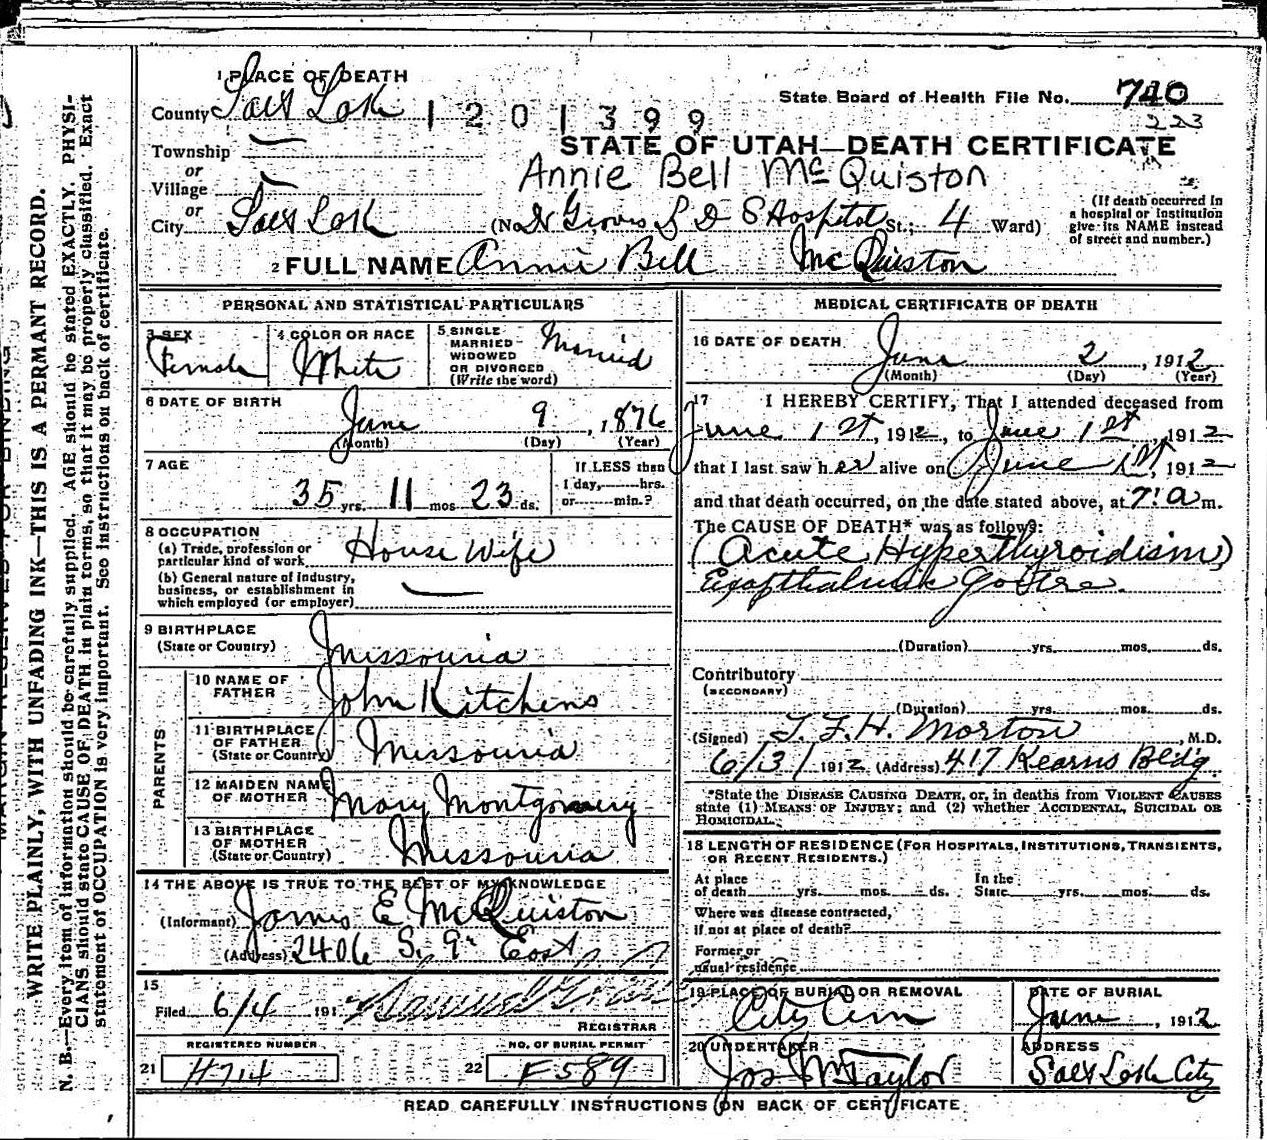 1 PLACE OF DEATH
County Salt Lake 1201399
State Board of Health File No. 740
223
STATE OF UTAH—DEATH CERTIFICATE
Township
or
Village
or
Annie Bell McQuiston
City Salt Lake (No. Dr Groves L D S Hospital St.; 4 Ward)
(If death occurred in
a hospital or institution
give its NAME instead
of street and number.)
2 FULL NAME Annie Bell McQuiston
PERSONAL AND STATISTICAL PARTICULARS
3 SEX
Female
4 COLOR OR RACE
White
5 SINGLE
MARRIED
WIDOWED
OR DIVORCED
(Write the word)
Married
6 DATE OF BIRTH
June 9, 1876
(Month) (Day) (Year)
7 AGE
35 yrs. 11 mos 23 ds.
If LESS than
1 day, hrs.
or min.?
8 OCCUPATION
(a) Trade, profession or
particular kind of work House Wife
(b) General nature of industry,
business, or establishment in
which employed (or employer)
9 BIRTHPLACE
(State or Country) Missouria
PARENTS
10 NAME OF
FATHER John Kitchens
11 BIRTHPLACE
OF FATHER
(State or Country) Missouria
12 MAIDEN NAME
OF MOTHER Mary Montgomery
13 BIRTHPLACE
OF MOTHER
(State or Country) Missouria
14 THE ABOVE IS TRUE TO THE BEST OF MY KNOWLEDGE
(Informant) James E McQuiston
(Address) 2406 S. 9" East
15
Filed 6/4 191
REGISTRAR
REGISTERED NUMBER
21 H714
NO. OF BURIAL PERMIT
22 F589
MEDICAL CERTIFICATE OF DEATH
16 DATE OF DEATH
June 2, 1912
(Month) (Day) (Year)
17 I HEREBY CERTIFY, That I attended deceased from
June 1st, 1912, to June 1st, 1912
that I last saw her alive on June 1st, 1912
and that death occurred, on the date stated above, at 7: a m.
The CAUSE OF DEATH* was as follows:
(Acute Hyperthyroidism)
Exopthalmik Goitre.
(Duration) yrs. mos. ds.
Contributory
(SECONDARY)
(Duration) yrs. mos. ds.
(Signed) T. F. H. Morton, M.D.
6/3/1912 (Address) 417 Kearns Bldg.
*State the DISEASE CAUSING DEATH, or, in deaths from VIOLENT CAUSES
state (1) MEANS OF INJURY; and (2) whether ACCIDENTAL, SUICIDAL OR
HOMICIDAL.
18 LENGTH OF RESIDENCE (FOR HOSPITALS, INSTITUTIONS, TRANSIENTS,
OR RECENT RESIDENTS.)
At place
of death yrs. mos. ds.
In the
State yrs. mos. ds.
Where was disease contracted,
If not at place of death?
Former or
usual residence
19 PLACE OF BURIAL OR REMOVAL
City Cem
DATE OF BURIAL
June, 1912
20 UNDERTAKER
Jos Wm Taylor
ADDRESS
Salt Lake City
READ CAREFULLY INSTRUCTIONS ON BACK OF CERTIFICATE
WRITE PLAINLY, WITH UNFADING INK—THIS IS A PERMANT RECORD.
N. B.—Every item of information should be carefully supplied. AGE should be stated EXACTLY. PHYSI-
CIANS should state CAUSE OF DEATH in plain terms, so that it may be properly classified. Exact
statement of OCCUPATION is very important. See instructions on back of certificate.